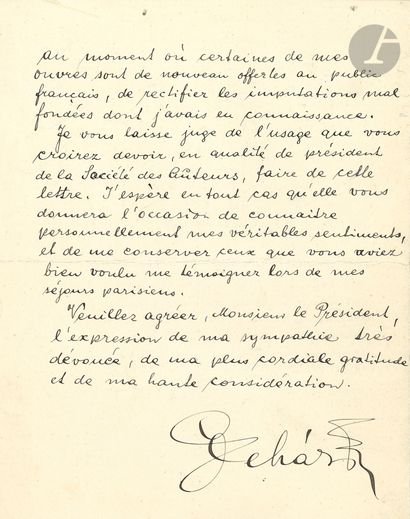 au moment où certaines de mes
œuvres sont de nouveau offertes au public
français, de rectifier les imputations mal
fondées dont j'avais eu connaissance.
Je vous laisse juge de l'usage que vous
croirez devoir, en qualité de président
de la Société des Auteurs, faire de cette
lettre. J'espère en tout cas qu'elle vous
donnera l'occasion de connaitre
personnellement mes véritables sentiments,
et de me conserver ceux que vous aviez
bien voulu me témoigner lors de mes
séjours parisiens.
Veuillez agréer, Monsieur le Président,
l'expression de ma sympathie très
dévouée, de ma plus cordiale gratitude
et de ma haute considération.
Lehár